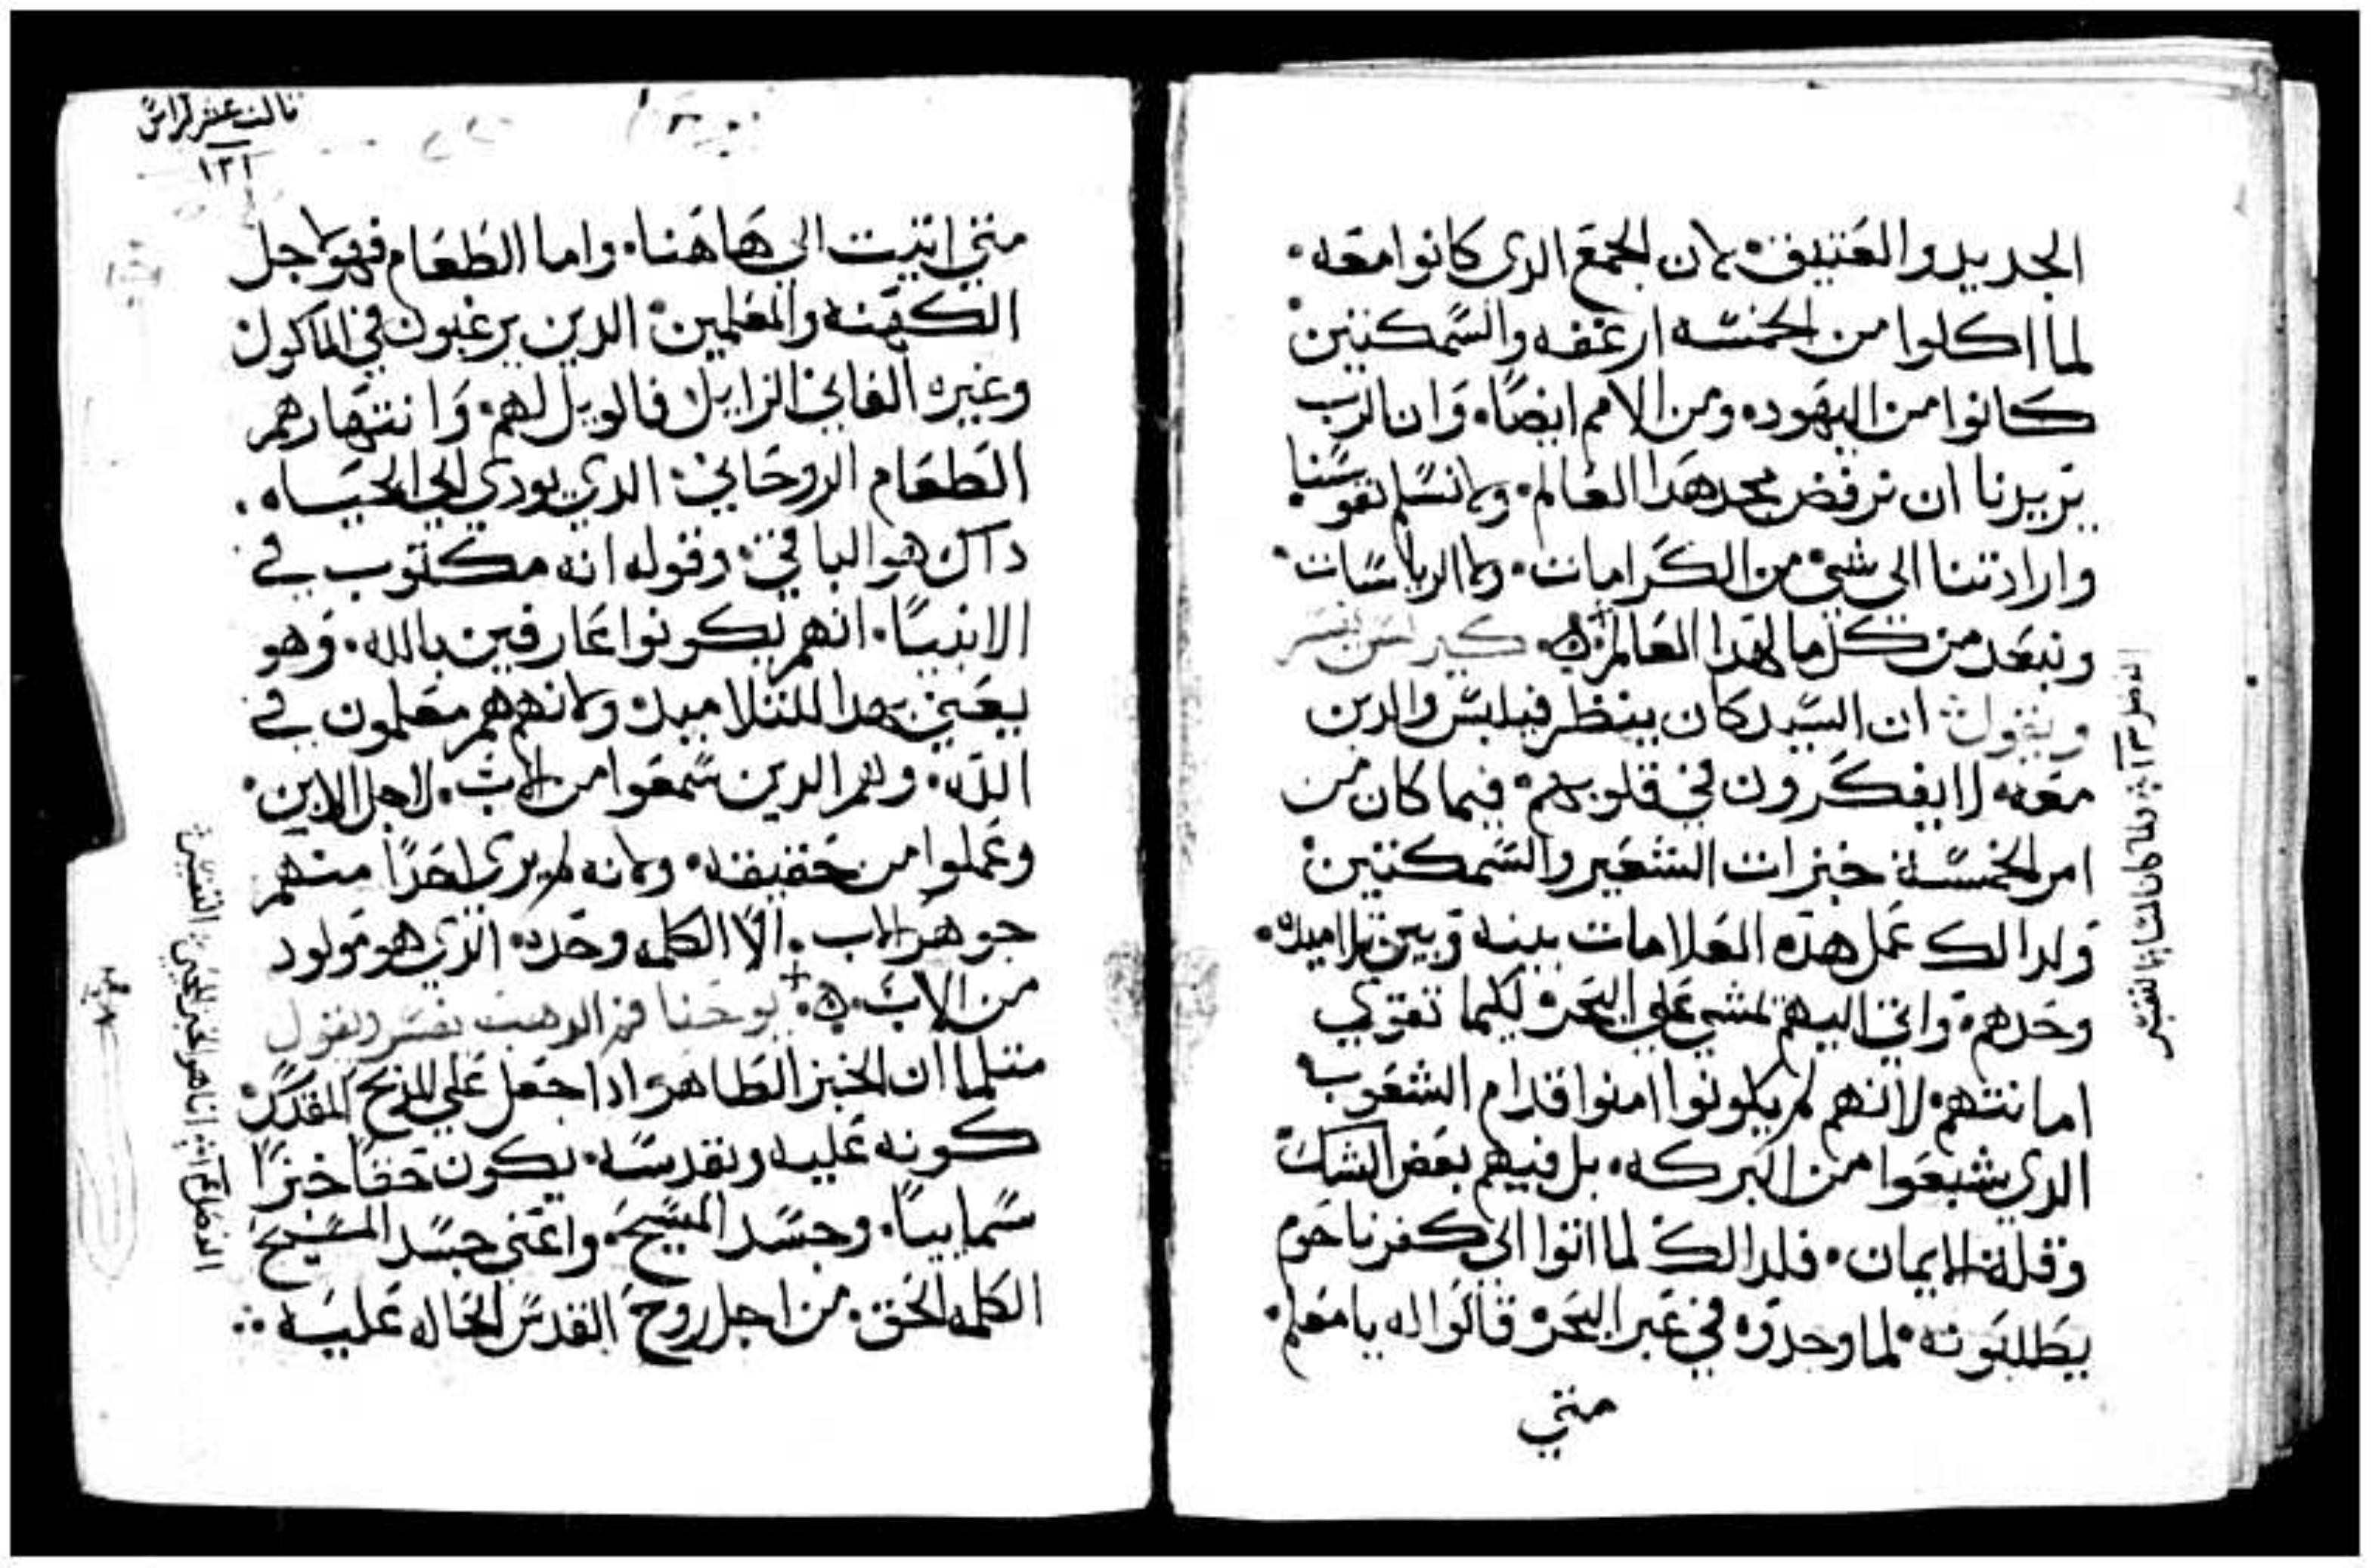 الجديد والعتيقة لان الجمع الدى كانوا معه.
لما اكلوا من الخمسه ارغفه والسمكتين
كانوا من اليهود. ومن الامم ايضًا. وان الرب
يريدنا ان نرفض مجد هدا العالم. ولا نسلم نفوسنا
وارادتنا الي شي من الكرامات. ولا الرياسات.
ونبعد من كل ما لهدا العالم ه. كيرلس يفسر
ويقول ان السيد كان ينظر فيلبس والدين
معه لا يفكرون في قلوبهم. فيما كان من
امر الخمسة خبزات الشعير والسمكتين
ولدالك عمل هده العلامات بينه وبين تلاميده.
وحدهم. واتي اليهم لمشي علي البحر لكيما تقوي
امانتهم. لانهم لم يكونوا امنوا قدام الشعوب
الدي شبعوا من البركه. بل فيهم بعض الشك
وقلة الايمان. فلدالك لما اتوا الي كفرناحوم
يطلبونه. لما وجدوه في عبر البحر قالوا له يا معلم.
متي
ثالث عشر كراس
١٢١
متي اتيت الي هاهنا. واما الطعام فهو لاجل
الكهنه والمعلمين الدين يرغبون في الماكول
وغيره الفاني الزايل فالويل لهم. وانتهارهم
الطعام الروحاني الدي يودي الي الحياه.
داك هو الباقي. وقوله انه مكتوب في
الانبيا. انهم يكونوا عارفين بالله. وهو
يعني بهدا للتلاميد. ولانهم هم معلمون في
الله. وهم الدين سمعوا من الاب. لاجل الابن.
وعملوا من حقيقته. ولانه لم يرى احدًا منهم
جوهر الاب. الا الكلمه وحده. الدي هو مولود
من الاب. ه. يوحنا فم الدهب يفسر ويقول
متلما ان الخبز الطاهر ادا جعل علي المدبح المقدس
كونه عليه وتقدسه. يكون حقا خبزا
سماييا. وجسد المسيح. واعني جسد المسيح
الكلمه الحق. من اجل روح القدس الحاله عليه ؞